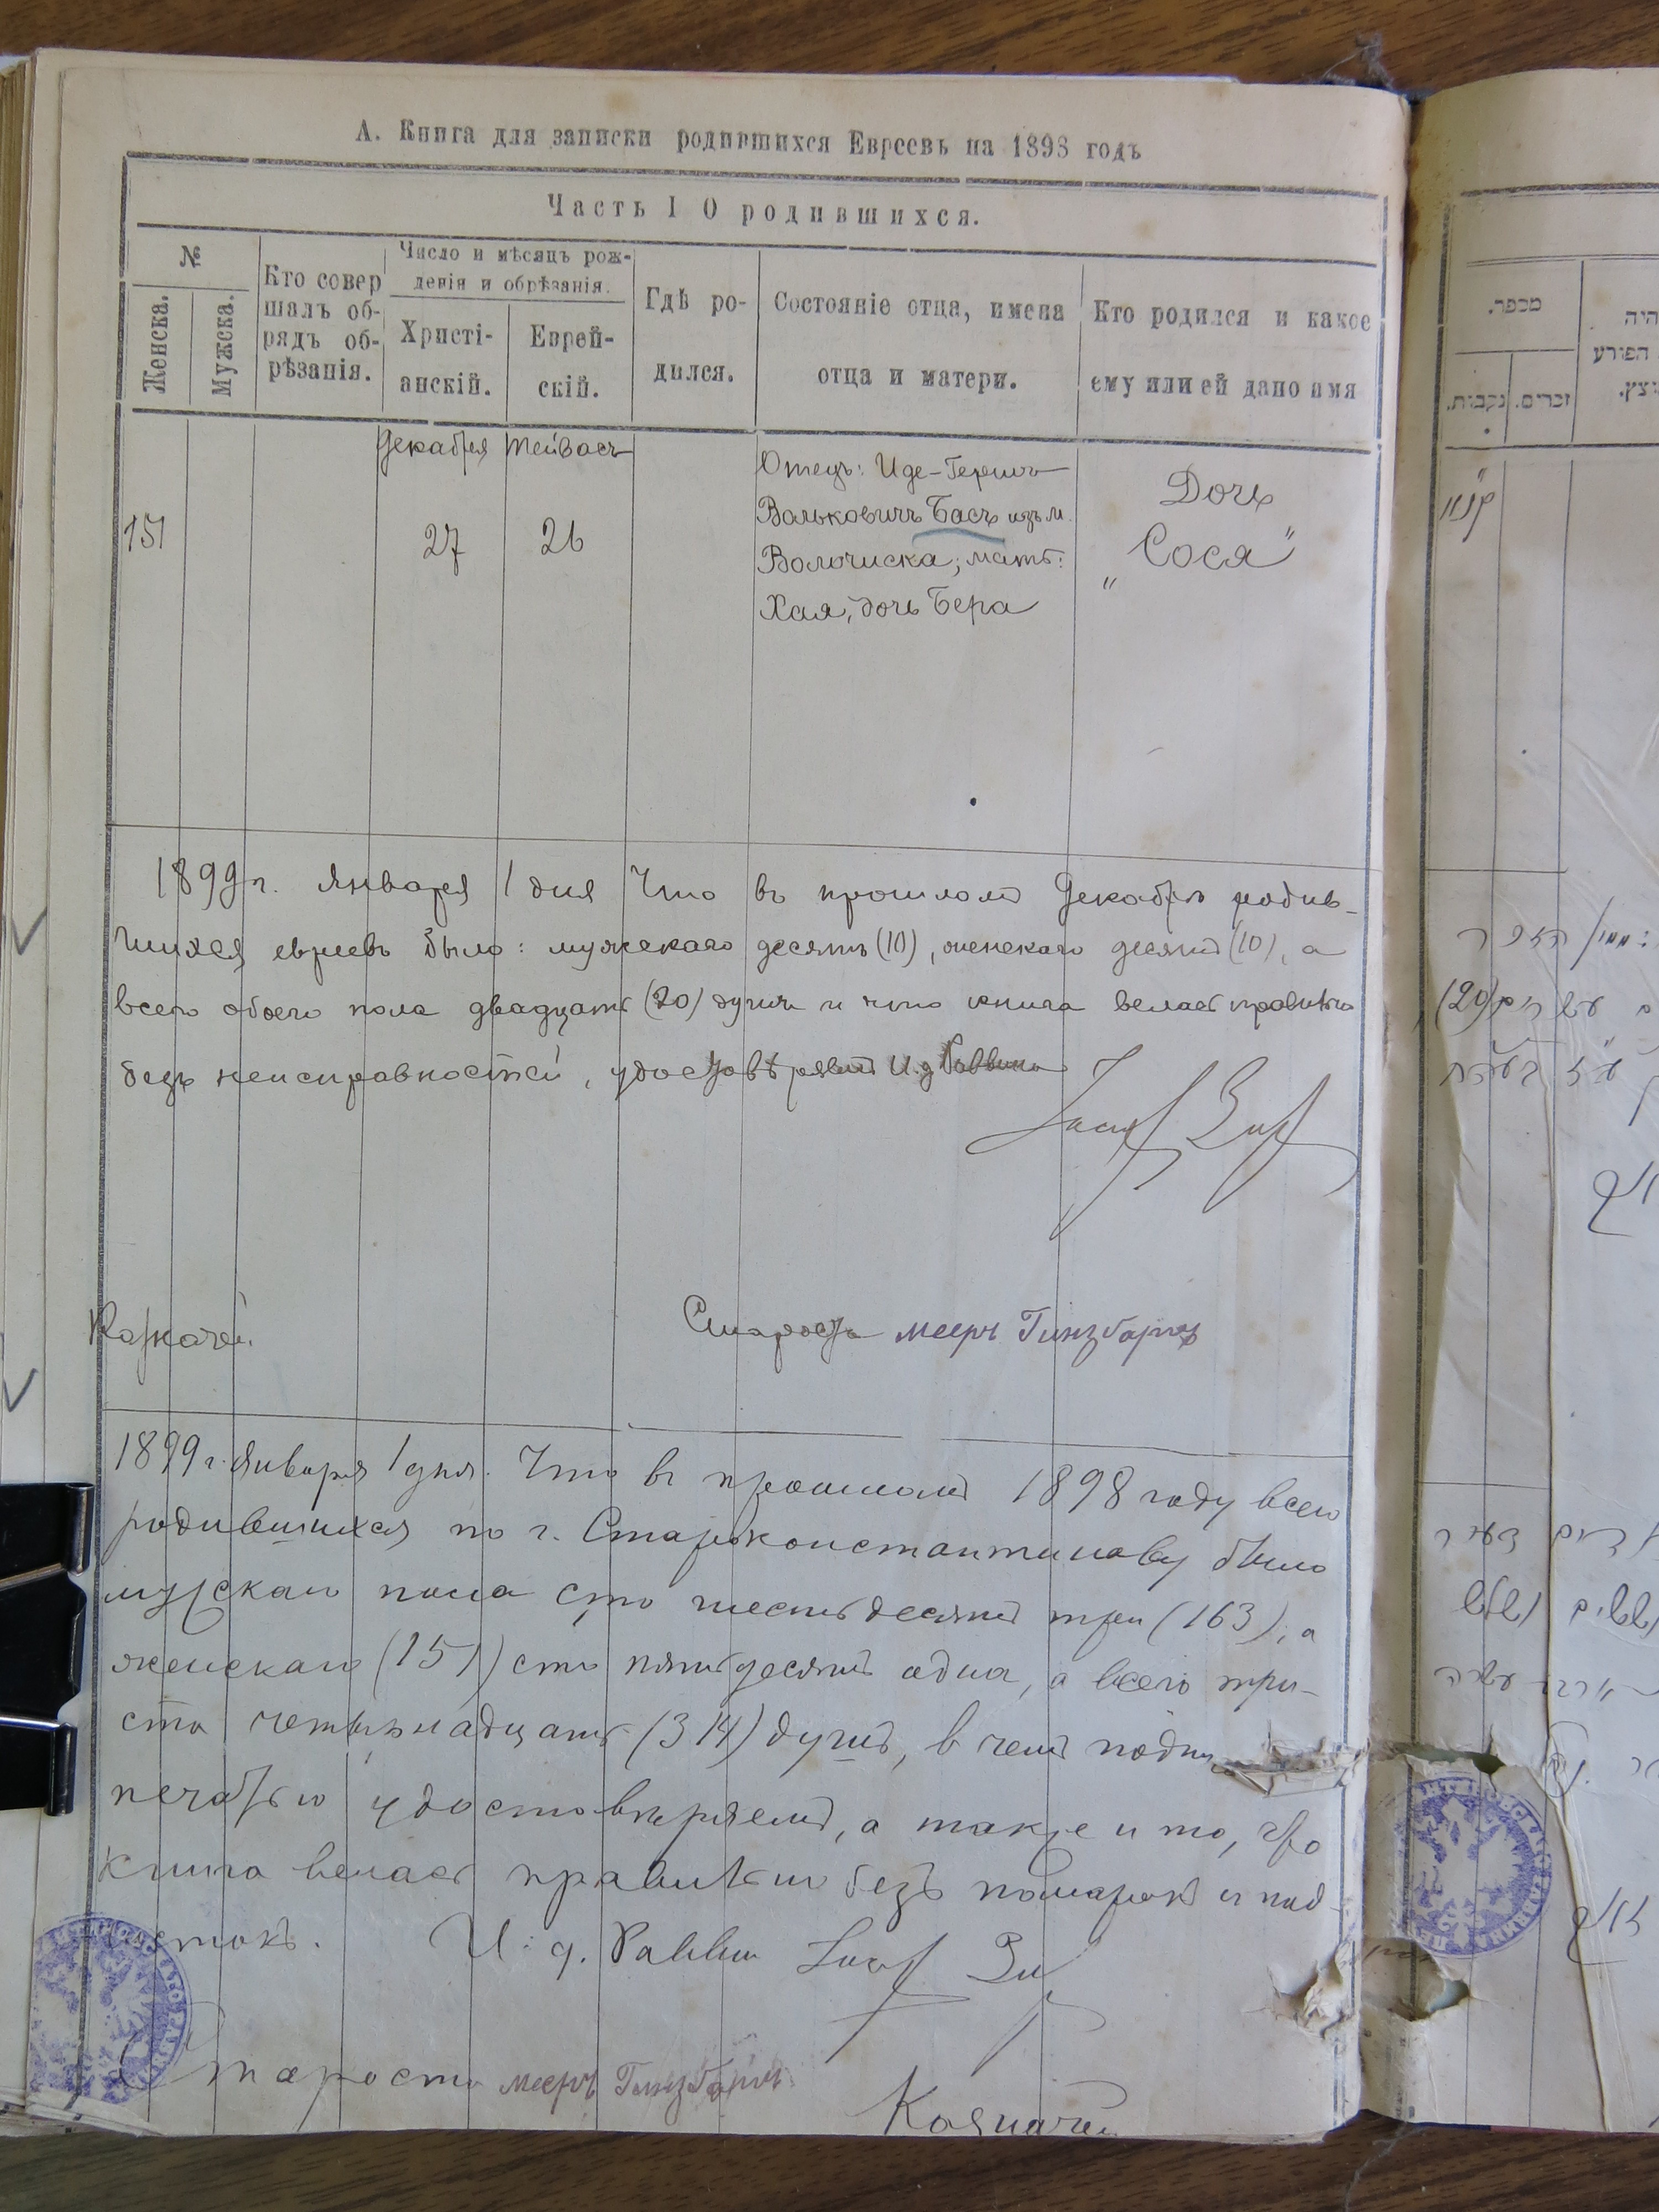 А. Книга для записки родившихся Евреевъ на 1898 годъ
Часть I О родившихся.
№
Женска.
Мужеска.
Кто совер
шалъ об-
рядъ об-
рѣзанія.
Число и мѣсяцъ рож-
денія и обрѣзанія.
Христі-
анскій.
Еврей-
скій.
Гдѣ ро-
дился.
Состояніе отца, имена
отца и матери.
Кто родился и какое
ему или ей дано имя
151
Декабря
27
Тейвасъ
26
Отецъ: Иде-Гершъ
Вольковичъ Басъ изъ м.
Волочиска; мать:
Хая, дочь Бера
Дочь
„Сося"
1899 г. Января 1 дня Что въ прошломъ Декабрѣ родив-
шихся евреевъ было: мужскаго десять (10), женскаго десять (10), а
всего обоего пола двадцать (20) душъ и что книга велась правильно
безъ неисправностей, удостовѣряемъ И. д. Раввина
Казначей
Староста Мееръ Гинзбаргъ
1899 г. Января 1 дня. Что въ прошломъ 1898 году всего
родившихся по г. Староконстантинову было
мужскаго пола сто шестьдесятъ три (163), а
женскаго (151) сто пятьдесятъ одна, а всего три-
ста четырнадцать (314) душъ, в чемъ подпи
печатью удостовѣряемъ, а также и то, что
книга велась правильно безъ помарокъ и под-
стокъ.
И. д. Раввин
Староста Мееръ Гинзбаргъ
Казначей
מספר.
נקבות.
זכרים.
היה
הפורע
קנ"א
(20)